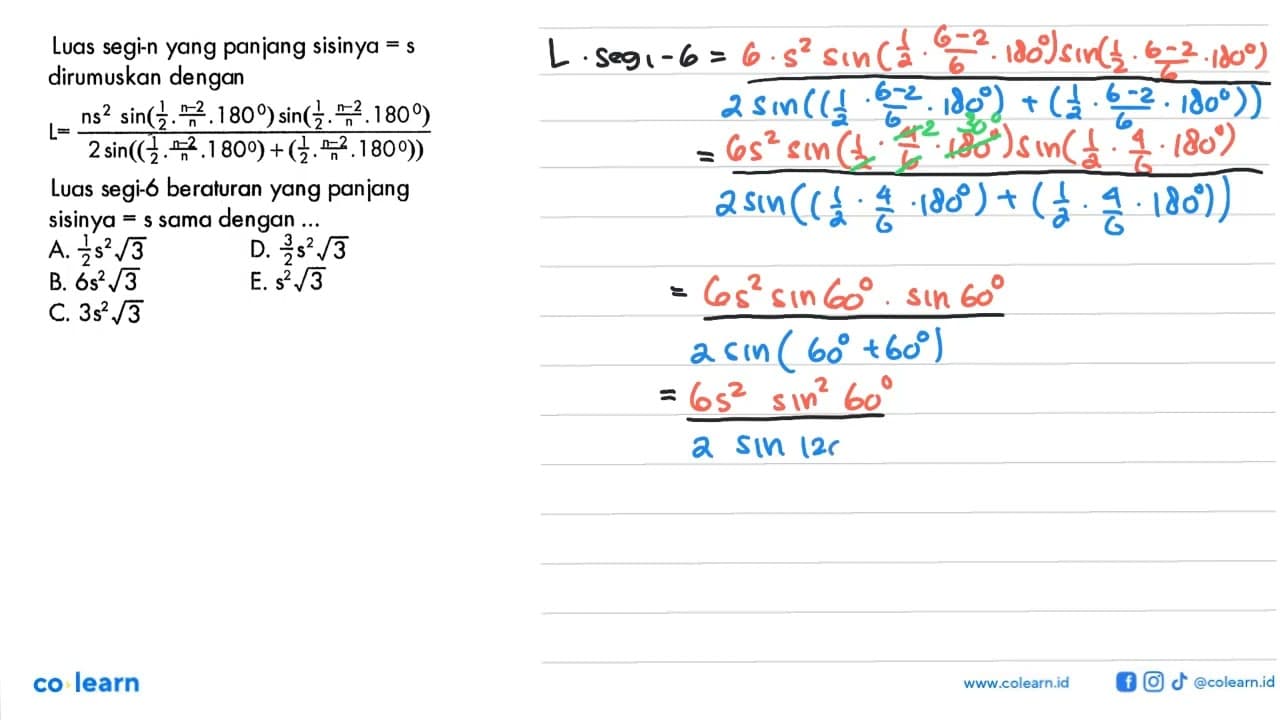 Luas segi-n yang panjang sisinya = s
dirumuskan dengan
L= ns² sin(½.(n-2)/n.180⁰)sin(½.(n-2)/n.180⁰)
2sin((½.(n-2)/n.180⁰)+(½.(n-2)/n.180⁰))
Luas segi-6 beraturan yang panjang
sisinya = s sama dengan ...
A. ½s²√3
D. 3/2s²√3
B. 6s²√3
E. s²√3
C. 3s²√3
L. segi-6 = 6 . s² sin(½ . (6-2)/6 . 180⁰)sin(½ . (6-2)/6 . 180⁰)
2 sin((½ . (6-2)/6 . 180⁰) + (½ . (6-2)/6 . 180⁰))
2 30⁰
= 6s² sin(½ . 4/6 . 180⁰)sin(½ . 4/6 . 180⁰)
2 sin((½ . 4/6 . 180⁰) + (½ . 4/6 . 180⁰))
= 6s² sin 60⁰ . sin 60⁰
2 sin( 60⁰ + 60⁰)
= 6s² sin² 60⁰
2 sin 12
co learn
www.colearn.id
@colearn.id